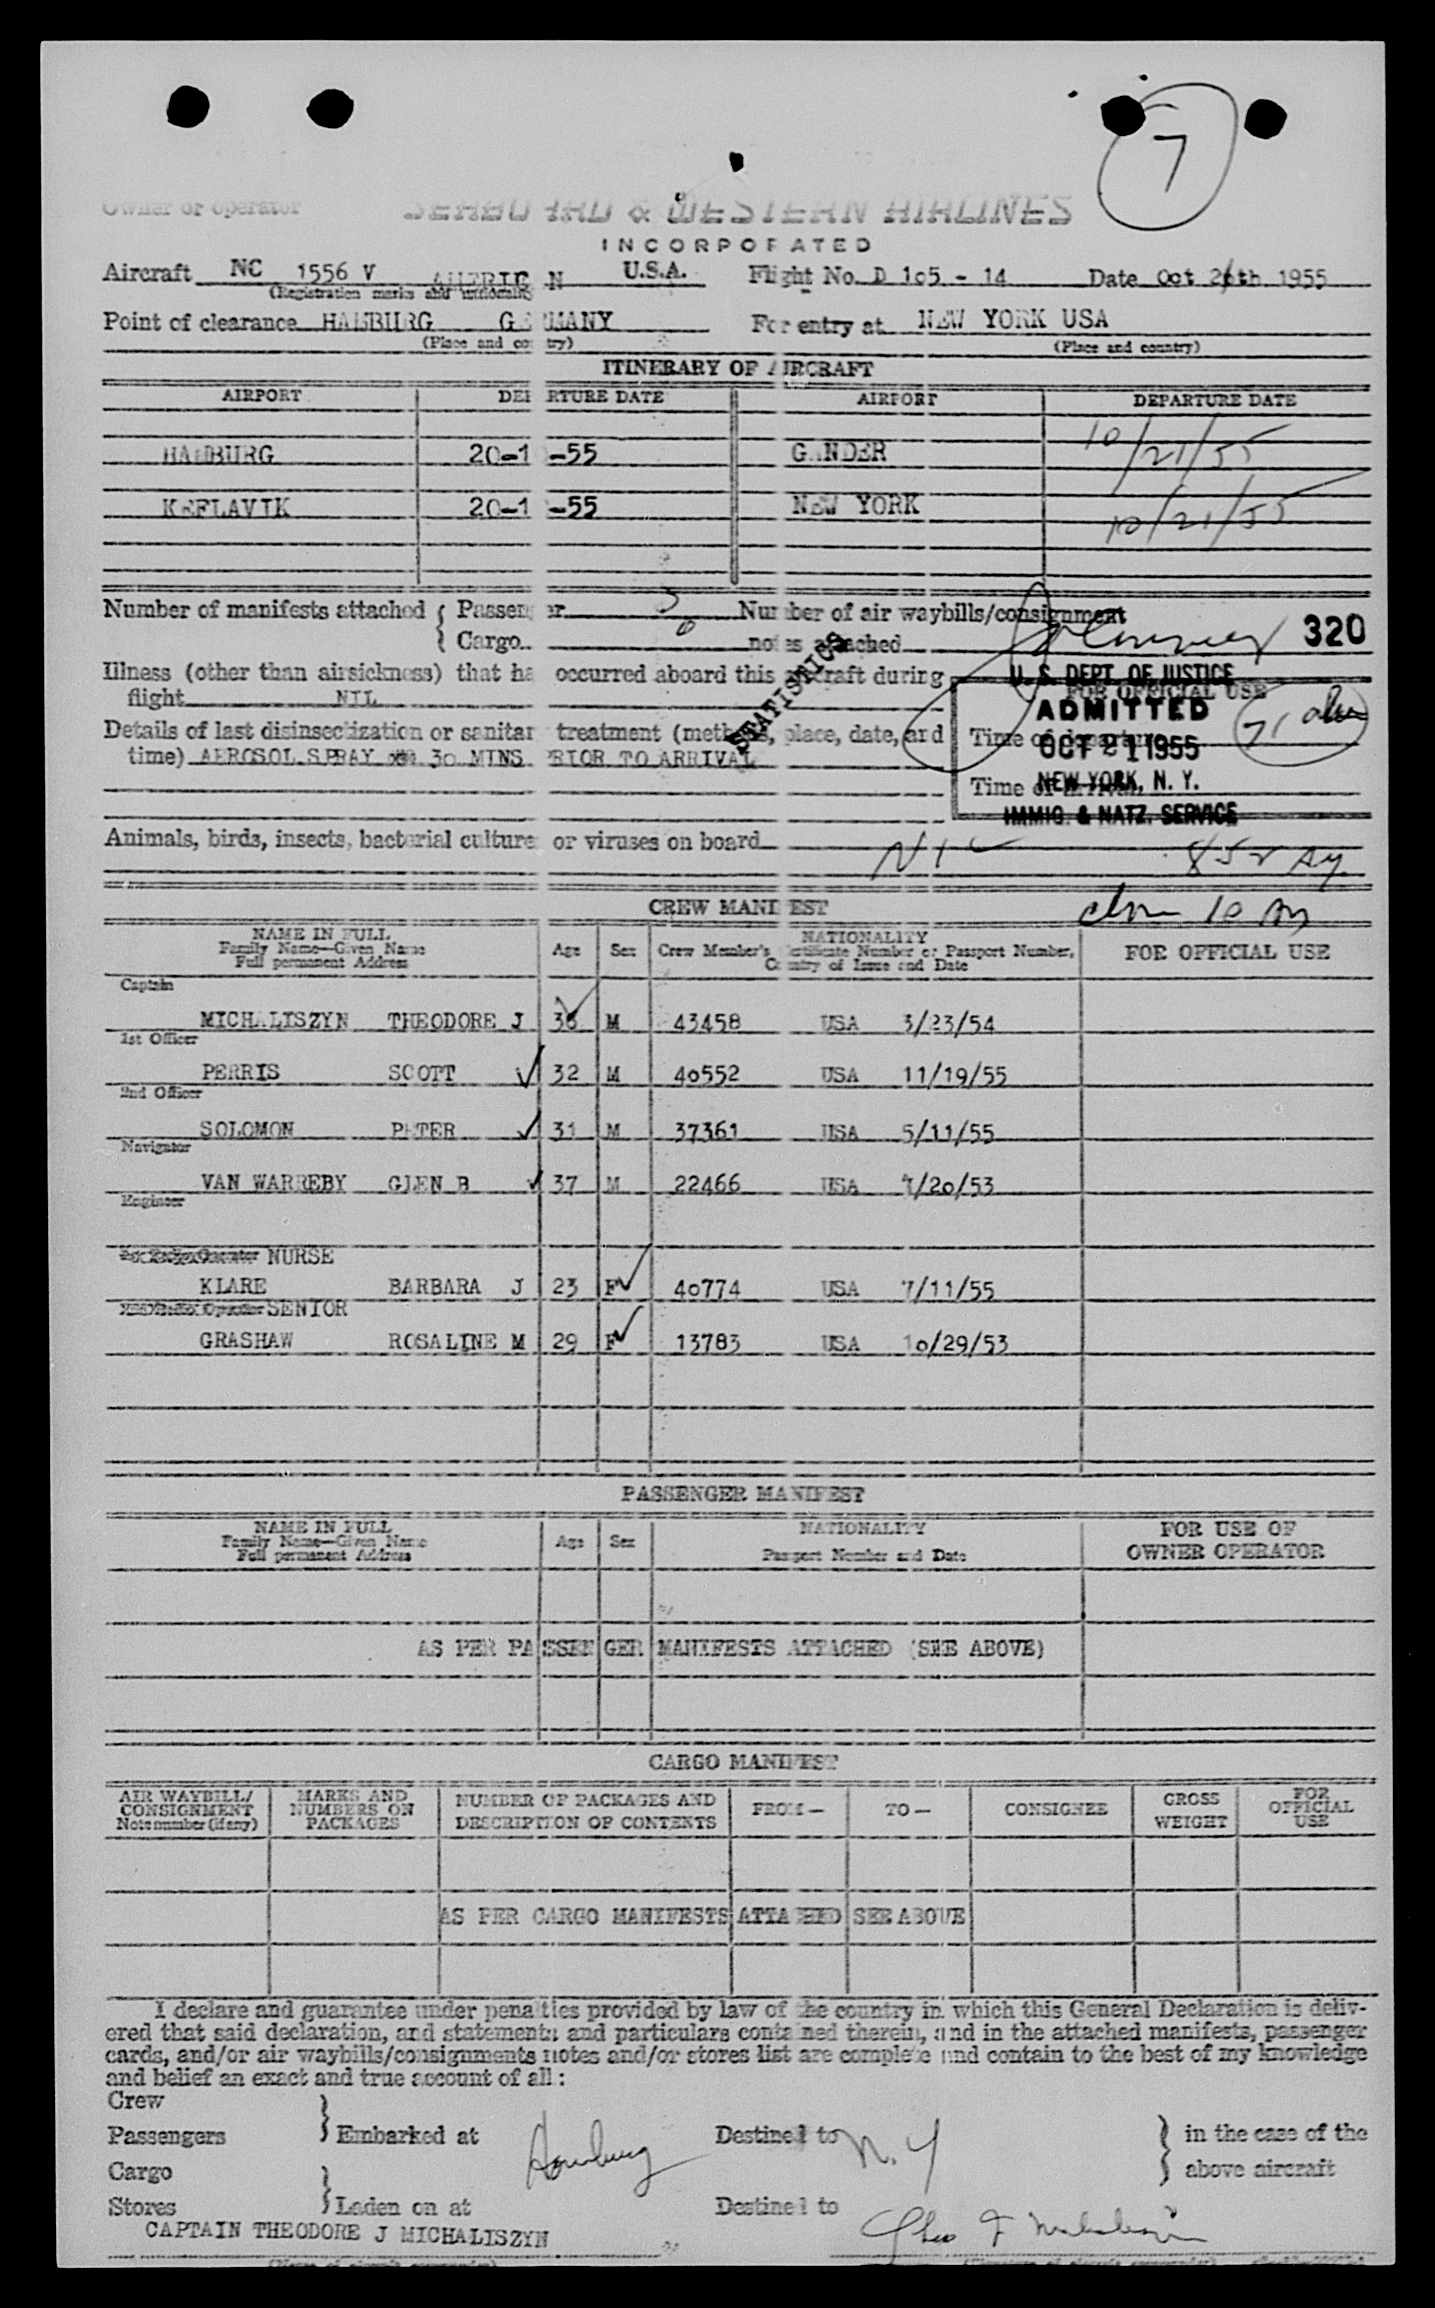 7
Owner or operator SEABOARD & WESTERN AIRLINES
INCORPORATED
Aircraft NC 1556 V AMERICAN U.S.A. Flight No. D 105 - 14 Date Oct 26th 1955
(Registration marks and nationality)
Point of clearance HAMBURG GERMANY For entry at NEW YORK USA
(Place and country) (Place and country)
ITINERARY OF AIRCRAFT
AIRPORT DEPARTURE DATE AIRPORT DEPARTURE DATE
HAMBURG 20-1 -55 GANDER 10/21/55
KEFLAVIK 20-1 -55 NEW YORK 10/21/55
Number of manifests attached { Passenger 3 Number of air waybills/consignment
Cargo 0 notes attached
320
Illness (other than airsickness) that has occurred aboard this aircraft during
flight NIL
STATISTICS
Details of last disinsectization or sanitary treatment (method, place, date, and
time) AEROSOL SPRAY 30 MINS PRIOR TO ARRIVAL
U. S. DEPT. OF JUSTICE
FOR OFFICIAL USE
ADMITTED
Time of departure
OCT 21 1955
Time of arrival
NEW YORK, N. Y.
IMMIG. & NATZ. SERVICE
Animals, birds, insects, bacterial cultures or viruses on board NIL
CREW MANIFEST
NAME IN FULL
Family Name—Given Name
Full permanent Address
Age Sex NATIONALITY
Crew Member's Certificate Number or Passport Number,
Country of Issue and Date
FOR OFFICIAL USE
Captain
MICHALISZYN THEODORE J 36 M 43458 USA 3/23/54
1st Officer
PERRIS SCOTT 32 M 40552 USA 11/19/55
2nd Officer
SOLOMON PETER 31 M 37361 USA 5/11/55
Navigator
VAN WARREBY GLEN B 37 M 22466 USA /20/53
Engineer
NURSE
KLARE BARBARA J 23 F 40774 USA 7/11/55
SENIOR
GRASHAW ROSALINE M 29 F 13783 USA 10/29/53
PASSENGER MANIFEST
NAME IN FULL
Family Name—Given Name
Full permanent Address
Age Sex NATIONALITY
Passport Number and Date
FOR USE OF
OWNER OPERATOR
AS PER PASSENGER MANIFESTS ATTACHED (SEE ABOVE)
CARGO MANIFEST
AIR WAYBILL/
CONSIGNMENT
Note number (if any)
MARKS AND
NUMBERS ON
PACKAGES
NUMBER OF PACKAGES AND
DESCRIPTION OF CONTENTS
FROM— TO— CONSIGNEE
GROSS
WEIGHT
FOR
OFFICIAL
USE
AS PER CARGO MANIFESTS ATTACHED SEE ABOVE
I declare and guarantee under penalties provided by law of the country in which this General Declaration is deliv-
ered that said declaration, and statements and particulars contained therein, and in the attached manifests, passenger
cards, and/or air waybills/consignments notes and/or stores list are complete and contain to the best of my knowledge
and belief an exact and true account of all:
Crew
Passengers } Embarked at Hamburg Destined to N. Y } in the case of the
Cargo above aircraft
Stores } Laden on at Destined to
CAPTAIN THEODORE J MICHALISZYN